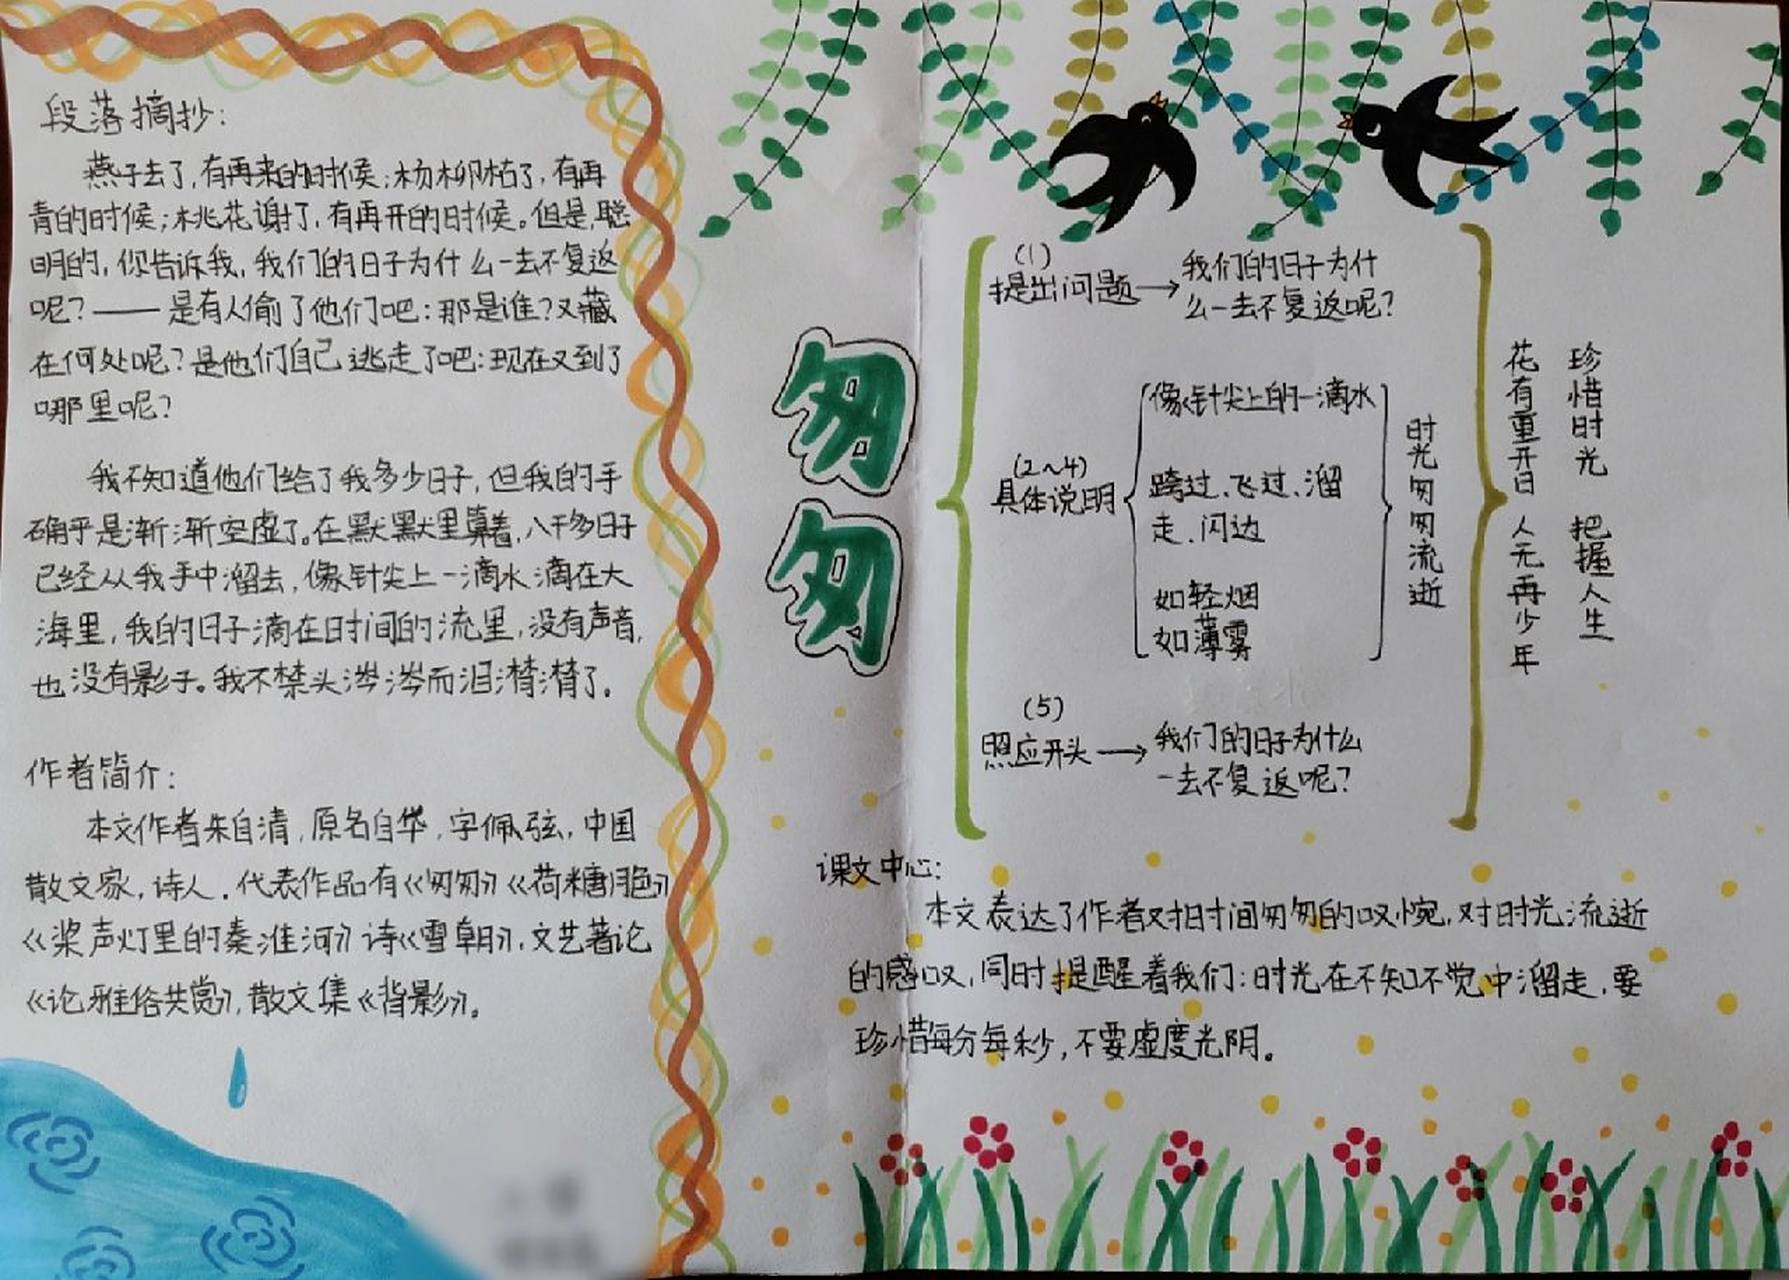 段落摘抄:
燕子去了,有再来的时候;杨柳枯了,有再
青的时候;桃花谢了,有再开的时候。但是,聪
明的,你告诉我,我们的日子为什么一去不复返
呢?——是有人偷了他们吧:那是谁?又藏
在何处呢?是他们自己逃走了吧:现在又到了
哪里呢?
我不知道他们给了我多少日子,但我的手
确乎是渐渐空虚了。在默默里算着,八千多日子
已经从我手中溜去,像针尖上一滴水滴在大
海里,我的日子滴在时间的流里,没有声音,
也没有影子。我不禁头涔涔而泪潸潸了。
作者简介:
本文作者朱自清,原名自华,字佩弦,中国
散文家,诗人.代表作品有《匆匆》《荷糖月色》
《桨声灯里的秦淮河》诗《雪朝》,文艺著论
《论雅俗共赏》,散文集《背影》。
匆匆
(1)
提出问题→我们的日子为什
么一去不复返呢?
(2~4)
具体说明
像针尖上的一滴水
跨过、飞过、溜
走、闪边
如轻烟
如薄雾
时光匆匆流逝
(5)
照应开头→我们的日子为什么
一去不复返呢?
花有重开日 人无再少年
珍惜时光 把握人生
课文中心:
本文表达了作者对时间匆匆的叹惋,对时光流逝
的感叹,同时提醒着我们:时光在不知不觉中溜走,要
珍惜每分每秒,不要虚度光阴。